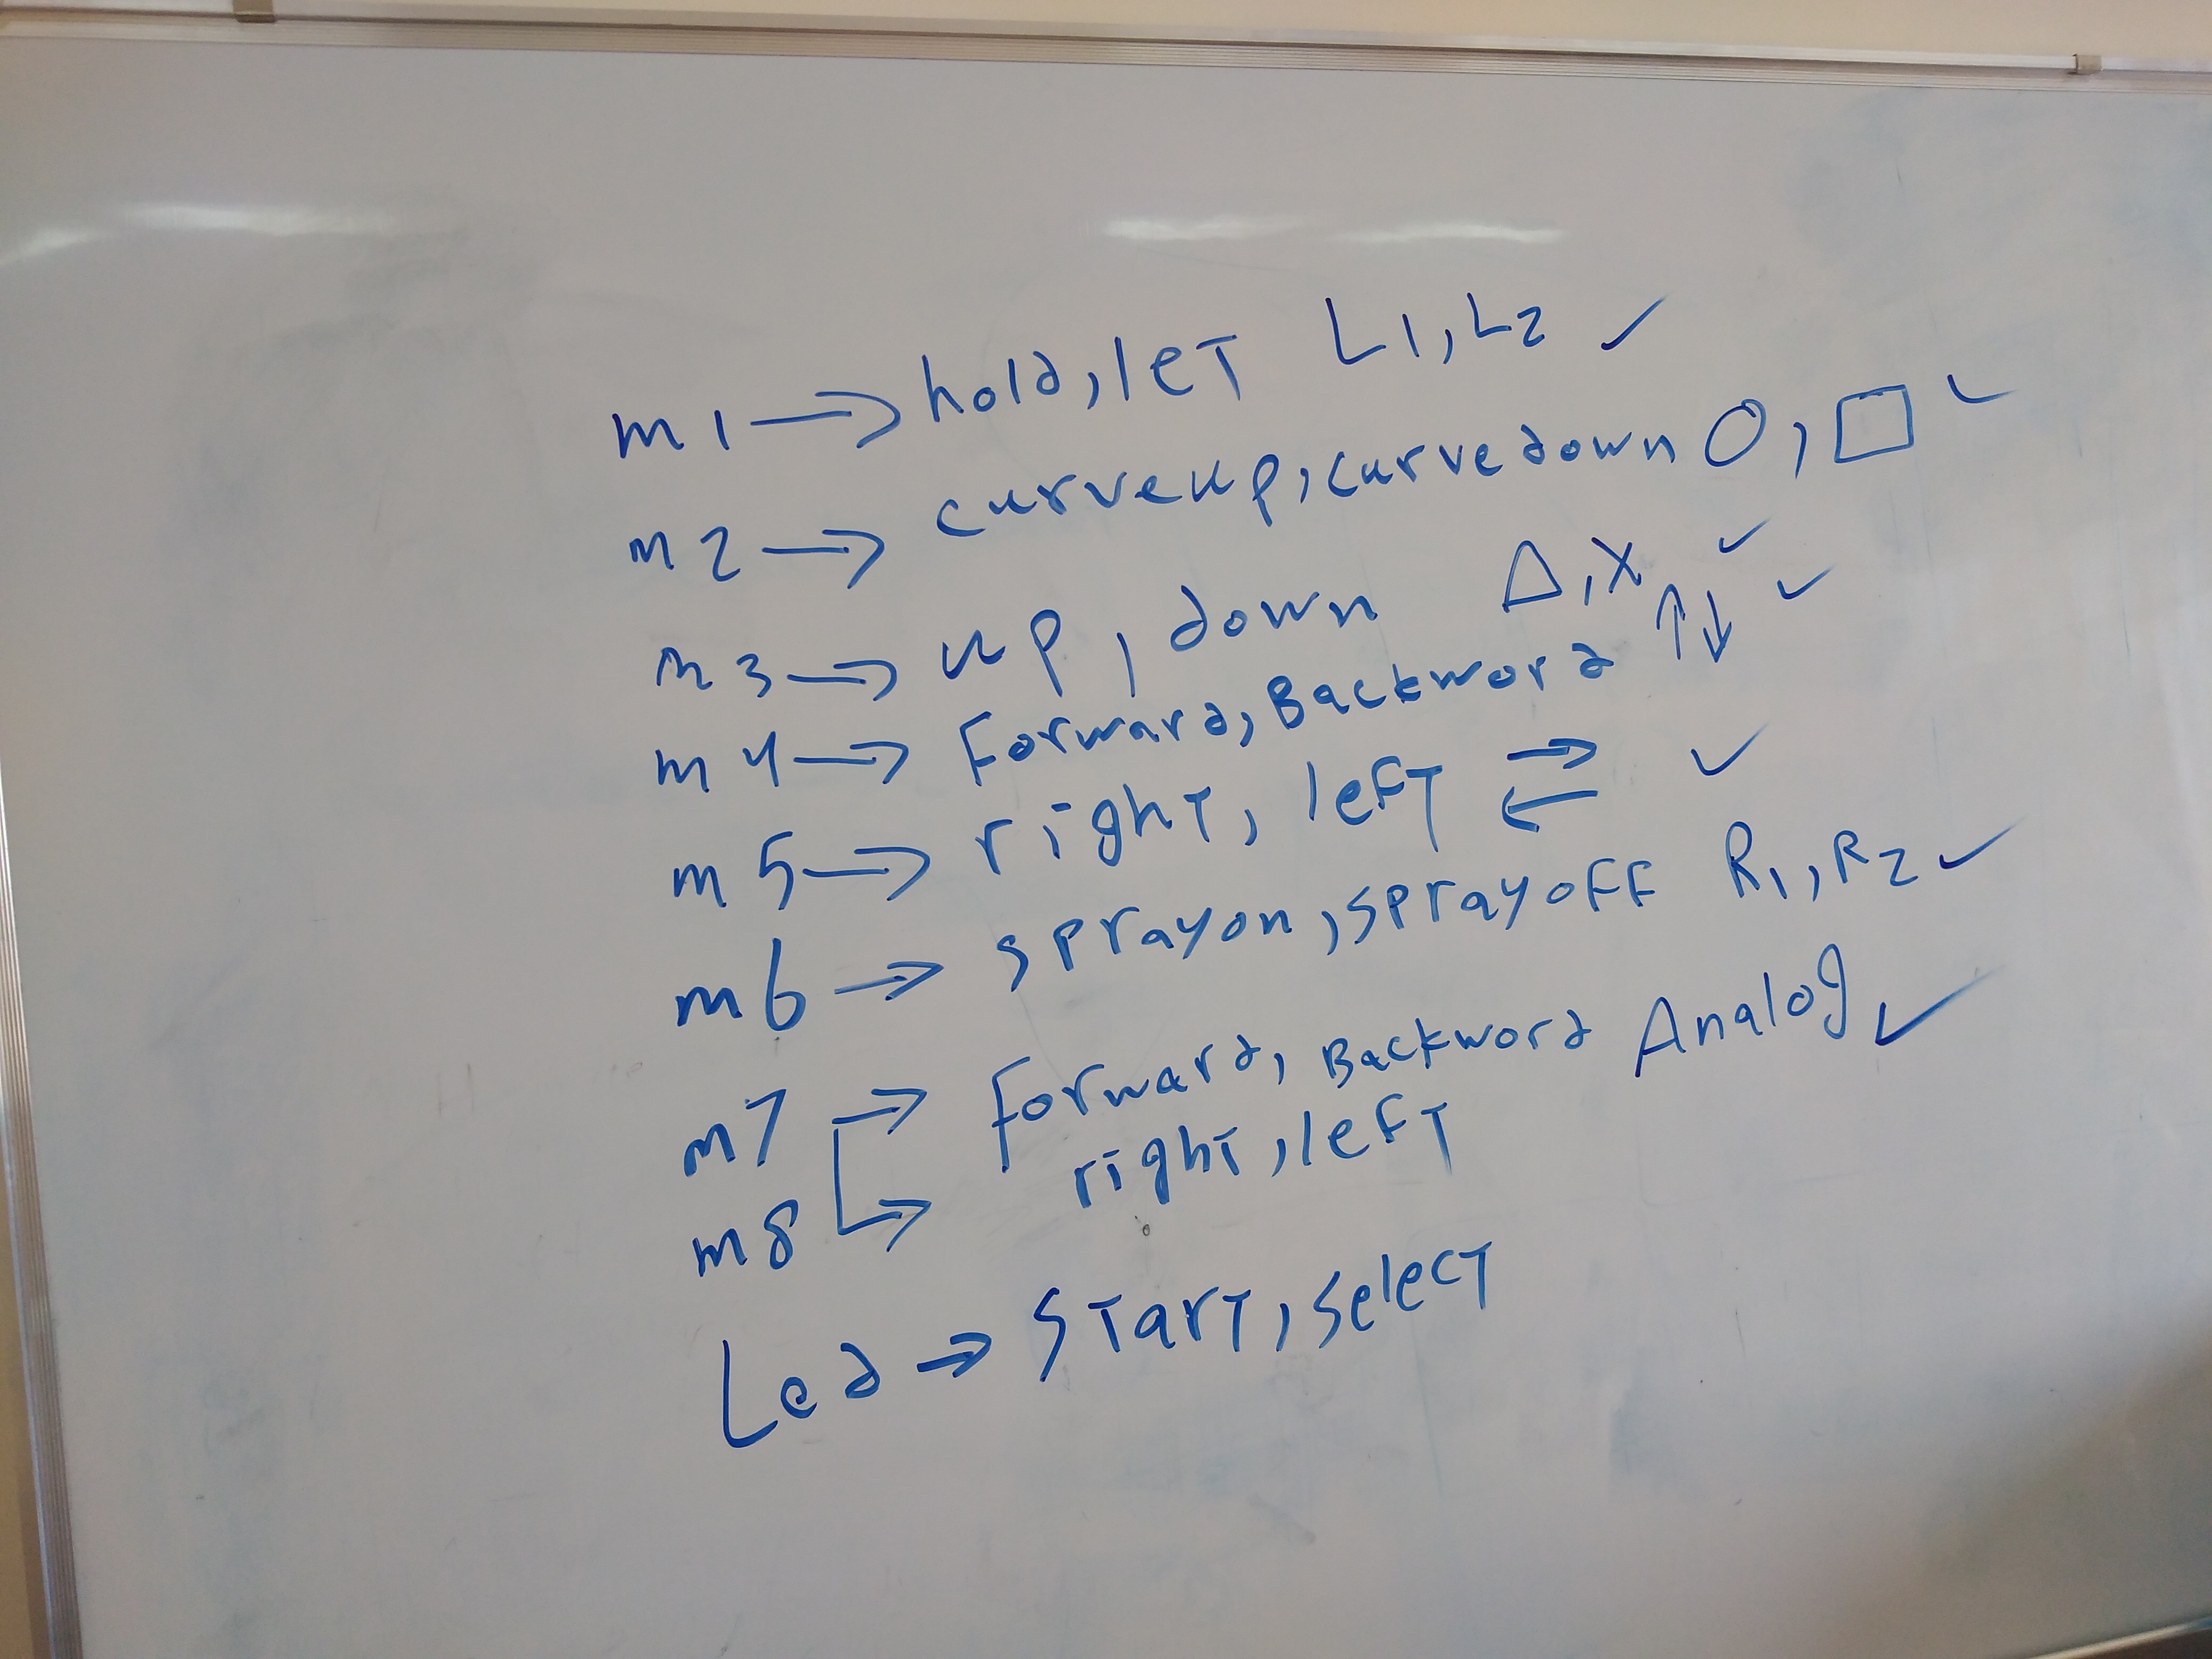 m1 → hold, let L1, L2 ✓
m2 → curveup, curvedown ○, □ ✓
m3 → up, down △, X ✓
m4 → Forward, Backword ↑↓ ✓
m5 → right, left →← ✓
m6 → sprayon, sprayoff R1, R2 ✓
m7 → Forward, Backword Analog ✓
m8 → right, left
Led → start, select